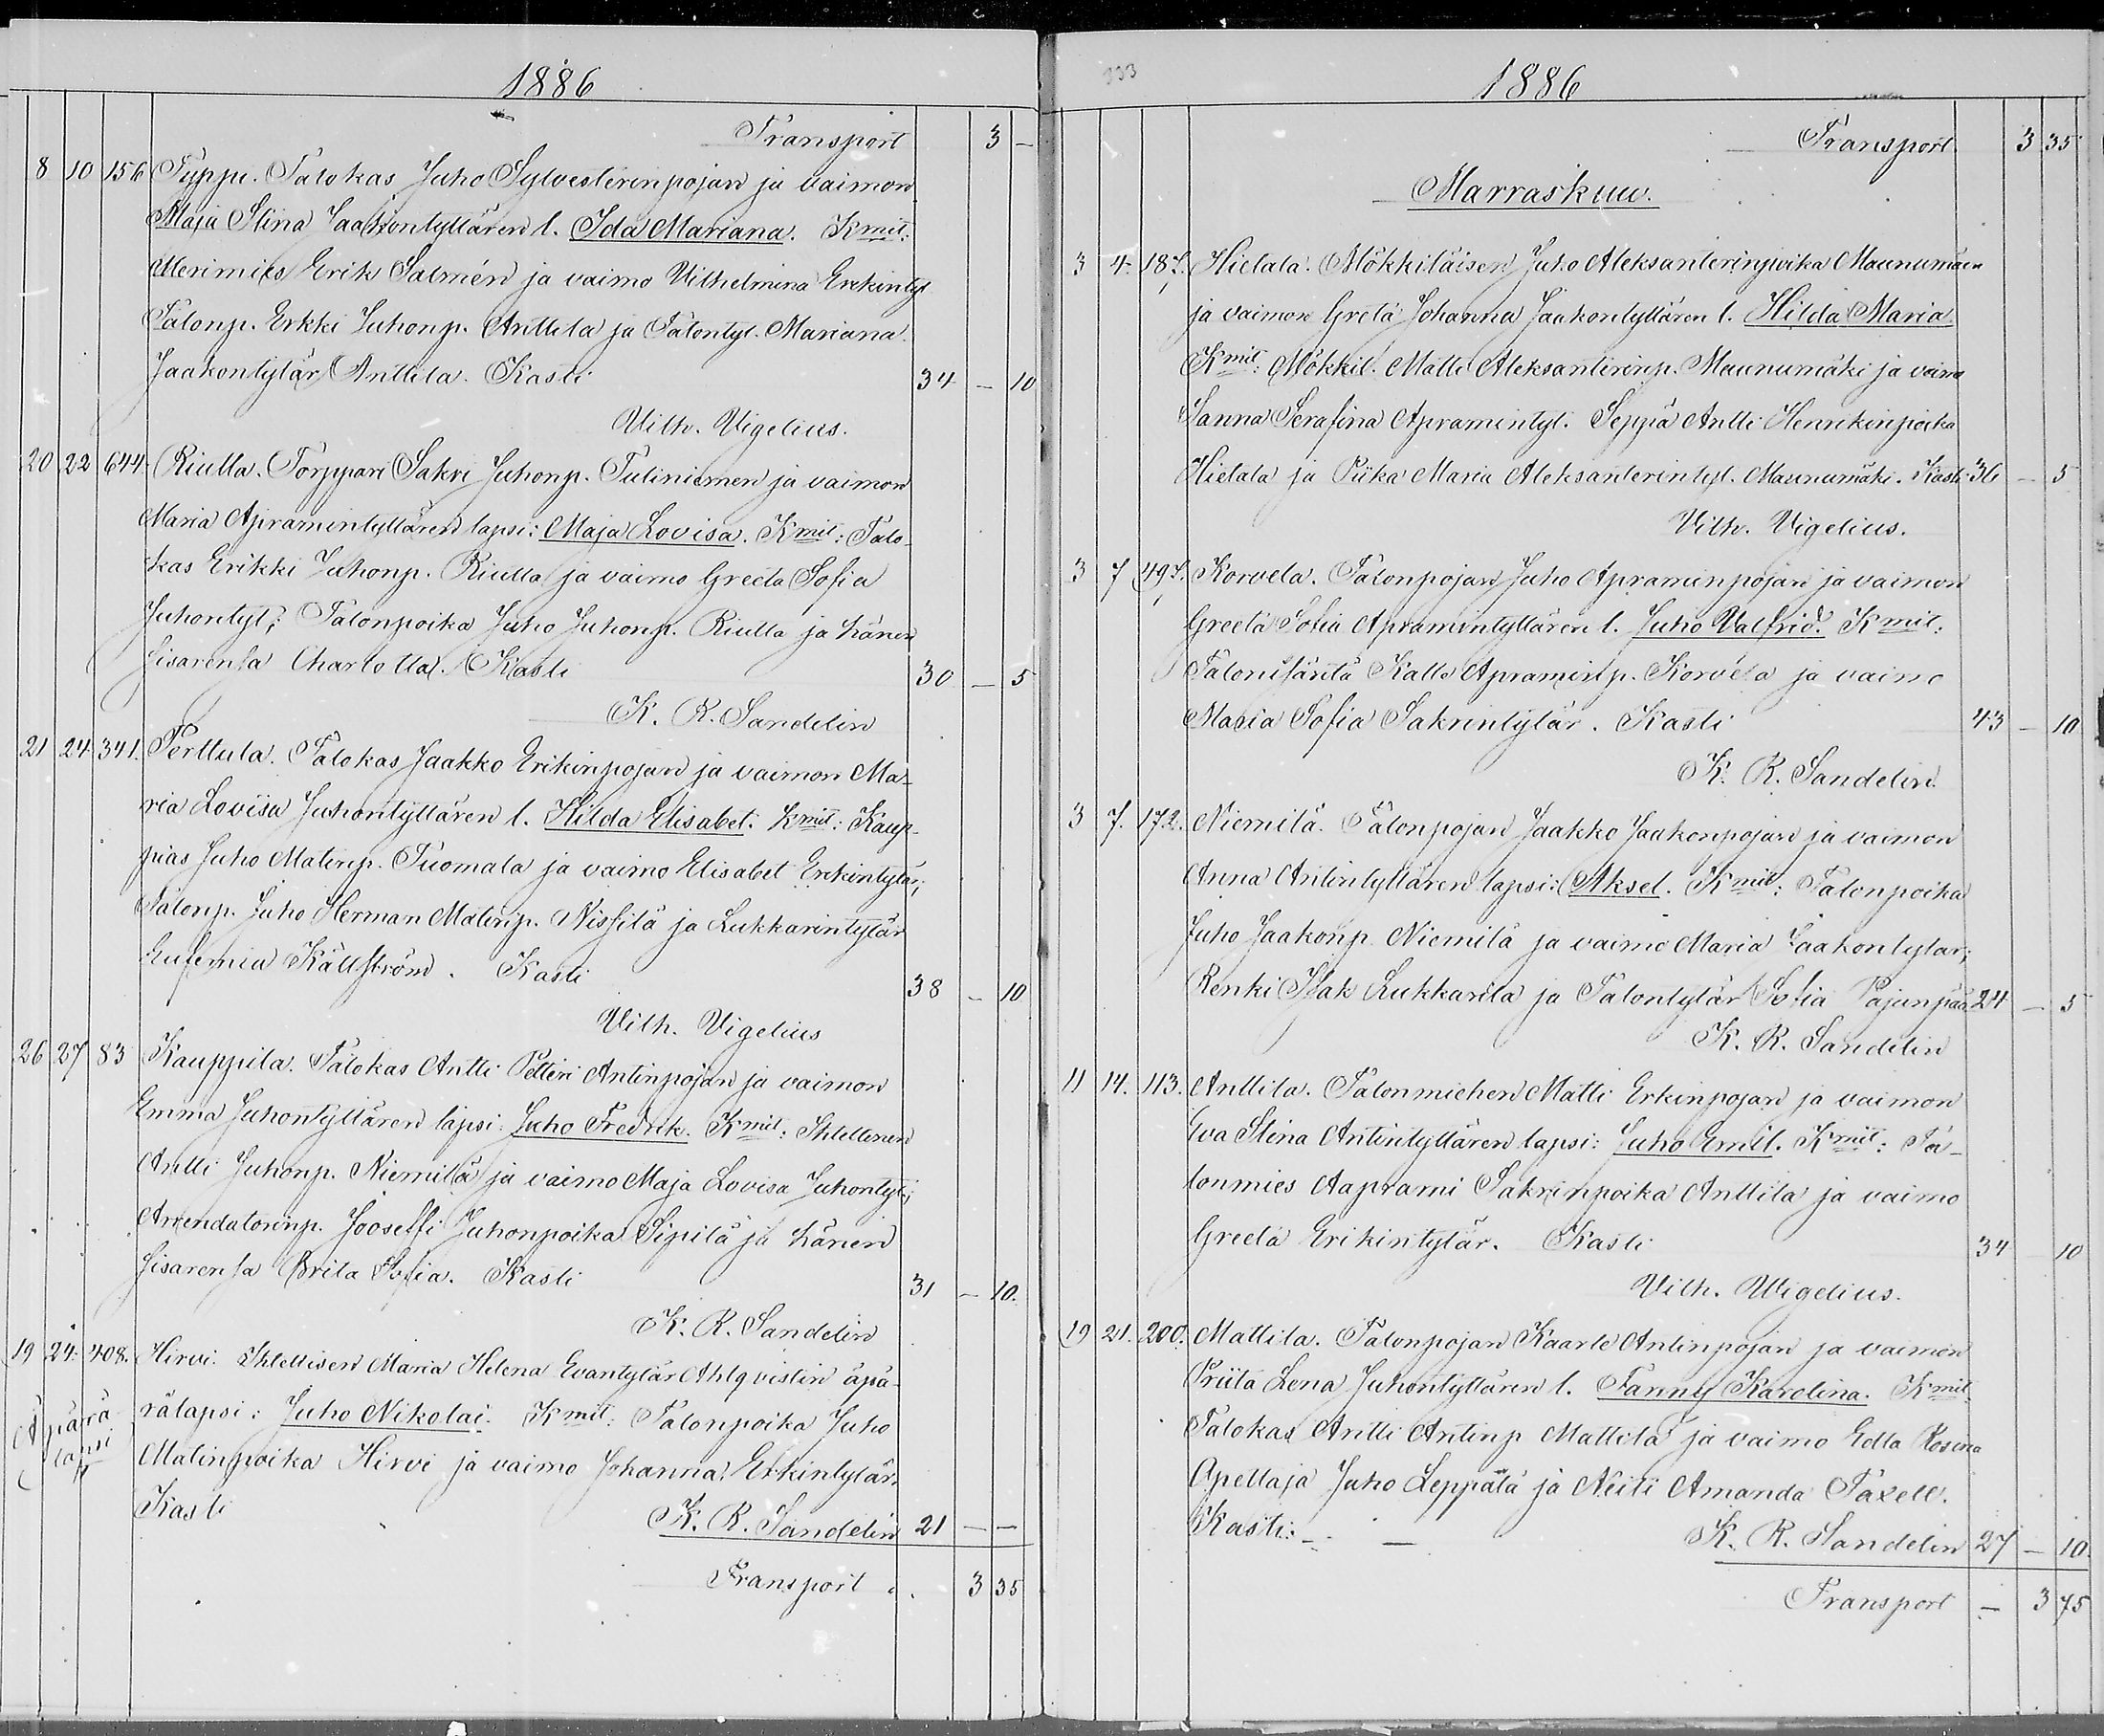 1886
Transport 3 —
8 10 156 Typpö. Talokas Juho Sylvesterinpojan ja vaimon
Maja Stina Jaakontyttären l. Ida Mariana. Kmit:
Merimies Erik Salmén ja vaimo Vilhelmina Erkintyt.
Talonp. Erkki Juhonp. Anttila ja Talontyt. Mariana
Jaakontytär Anttila. Kasti 34 — 10
Vilh. Vigelius.
20 22 644. Riutta. Torppari Sakri Juhonp. Tuliniemen ja vaimon
Maria Apramintyttären lapsi: Maja Lovisa. Kmit: Talo-
kas Erikki Juhonp. Riutta ja vaimo Greeta Sofia
Juhontyt; Talonpoika Juho Juhonp. Riutta ja hänen
sisarensa Charlotta. Kasti 30 — 5
K. R. Sandelin
21 24 341. Perttula. Talokas Jaakko Erikinpojan ja vaimon Ma-
ria Lovisa Juhontyttären l. Hilda Elisabet. Kmit: Kaup-
pias Juho Matinp. Tuomala ja vaimo Elisabet Erkintytär;
Talonp. Juho Herman Matinp. Nissilä ja Lukkarintytär
Eufemia Källström. Kasti 38 — 10
Vilh. Vigelius
26 27 83 Kauppila. Talokas Antti Petteri Antinpojan ja vaimon
Emma Juhontyttären lapsi: Juho Fredrik. Kmit: Ihtellinen
Antti Juhonp. Niemilä ja vaimo Maja Lovisa Juhontyt;
Arendatorinp. Jooseffi Juhonpoika Sipilä ja hänen
sisarensa Brita Sofia. Kasti 31 — 10.
K. R. Sandelin
19 24. 408. Hirvi. Ihtellisen Maria Helena Evantytär Ahlqvistin äpä-
Äpärä rälapsi: Juho Nikolai. Kmit: Talonpoika Juho
lapsi Matinpoika Hirvi ja vaimo Johanna Erkintytär.
Kasti K. R. Sandelin 21 — —
Transport 3 35
333
1886
Transport 3 35
Marraskuu.
3 4. 187. Hietala. Mökkiläisen Juho Aleksanterinpoika Maunumäen
ja vaimon Greta Johanna Jaakontyttären l. Hilda Maria
Kmit: Mökkil. Matti Aleksanterinp. Maunumäki ja vaimo
Sanna Serafina Apramintyt. Seppä Antti Henrikinpoika
Hietala ja Piika Maria Aleksanterintyt. Maunumäki. Kasti 36 — 5
Vilh. Vigelius.
3 7 497. Korvela. Talonpojan Juho Apraminpojan ja vaimon
Greeta Sofia Apramintyttären l. Juho Valfrid. Kmit:
Talonisäntä Kalle Apraminp. Korvela ja vaimo
Maria Sofia Sakrintytär. Kasti 43 — 10
K. R. Sandelin.
3 7. 172. Niemilä. Talonpojan Jaakko Jaakonpojan ja vaimon
Anna Antintyttären lapsi: Aksel. Kmit: Talonpoika
Juho Jaakonp. Niemilä ja vaimo Maria Jaakontytär;
Renki Isak Lukkarila ja Talontytär Sofia Pajunpää 24 — 5
K. R. Sandelin
11 14. 113. Anttila. Talonmiehen Matti Erkinpojan ja vaimon
Eva Stina Antintyttären lapsi: Juho Emil. Kmit: Ta-
lonmies Aaprami Sakrinpoika Anttila ja vaimo
Greeta Erikintytär. Kasti 34 10
Vilh. Wigelius.
19 21. 200. Mattila. Talonpojan Kaarle Antinpojan ja vaimon
Priita Lena Juhontyttären l. Fanny Karolina. Kmit:
Talokas Antti Antinp Mattila ja vaimo Edla Rosina
Apettaja Juho Leppälä ja Neiti Amanda Taxell.
Kasti: — — K. R. Sandelin 27 — 10.
Transport — 3 75